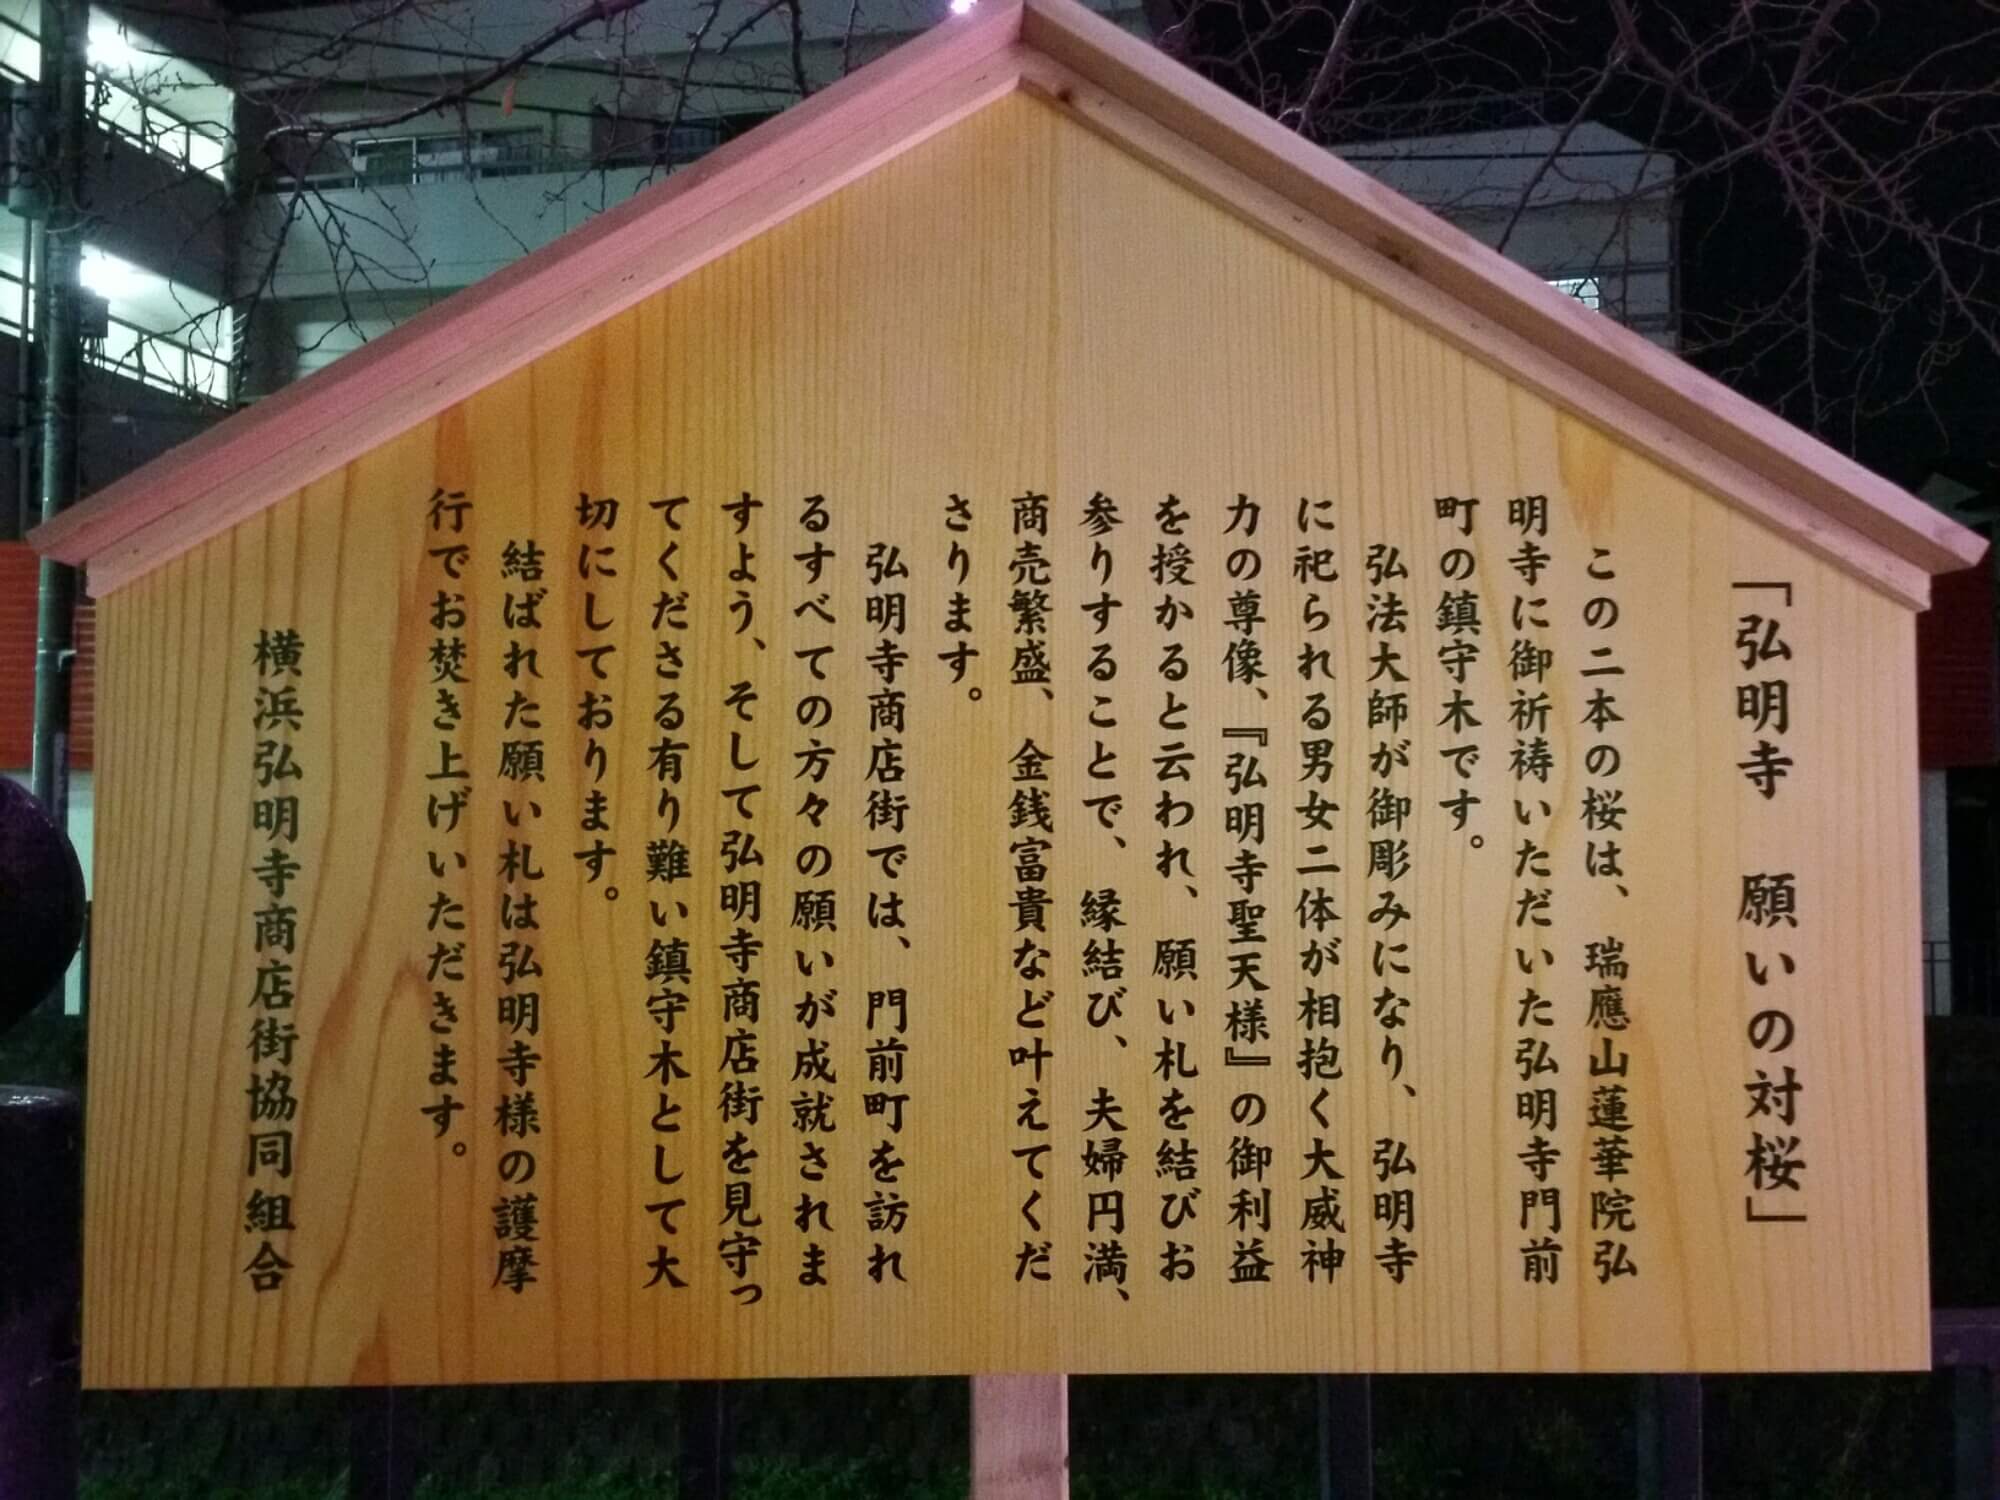 「弘明寺　願いの対桜」
　この二本の桜は、瑞應山蓮華院弘
明寺に御祈祷いただいた弘明寺門前
町の鎮守木です。
　弘法大師が御彫みになり、弘明寺
に祀られる男女二体が相抱く大威神
力の尊像、『弘明寺聖天様』の御利益
を授かると云われ、願い札を結びお
参りすることで、縁結び、夫婦円満、
商売繁盛、金銭富貴など叶えてくだ
さります。
　弘明寺商店街では、門前町を訪れ
るすべての方々の願いが成就されま
すよう、そして弘明寺商店街を見守っ
てくださる有り難い鎮守木として大
切にしております。
　結ばれた願い札は弘明寺様の護摩
行でお焚き上げいただきます。
横浜弘明寺商店街協同組合